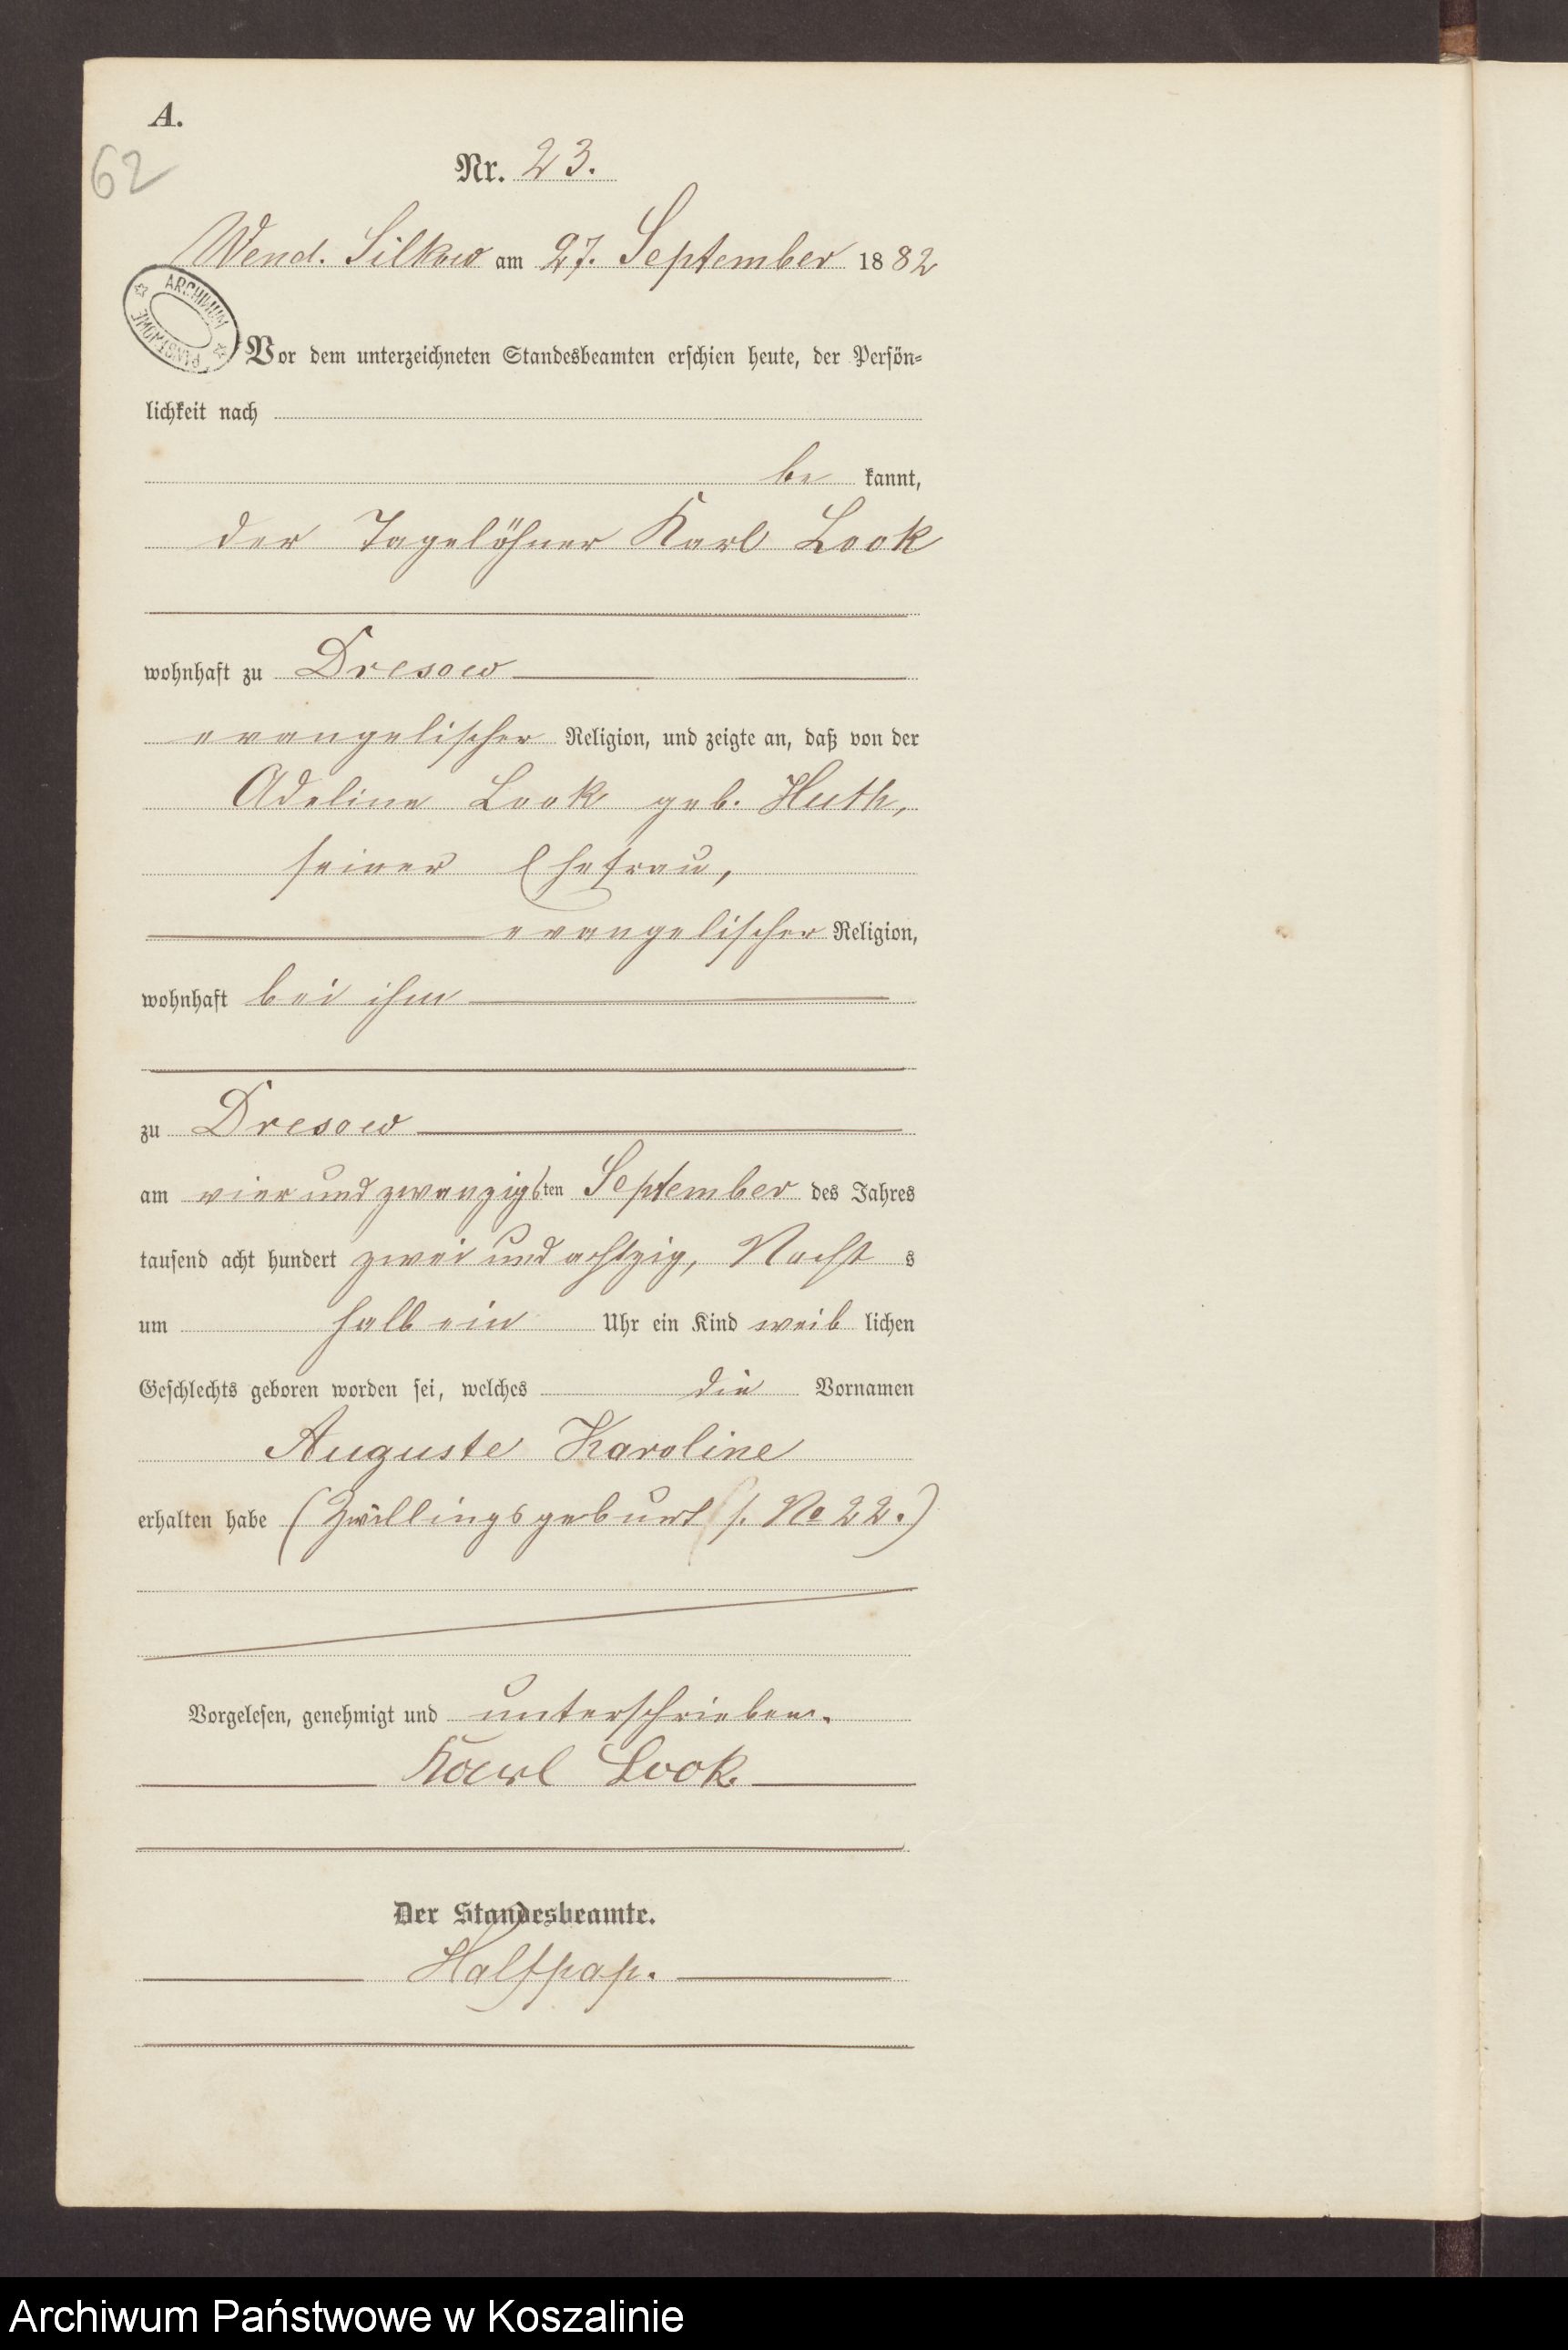 A.
62
Nr. 23.
Wend. Silkow am 27. September 1882
ARCHIWUM PAŃSTWOWE
Vor dem unterzeichneten Standesbeamten erschien heute, der Persön-
lichkeit nach
be kannt,
der Tagelöhner Karl Look
wohnhaft zu Dresow
evangelischer Religion, und zeigte an, daß von der
Adeline Look geb. Huth,
seiner Ehefrau,
evangelischer Religion,
wohnhaft bei ihm
zu Dresow
am vier und zwanzigsten September des Jahres
tausend acht hundert zwei und achtzig, Nacht s
um halb ein Uhr ein Kind weib lichen
Geschlechts geboren worden sei, welches die Vornamen
Auguste Karoline
erhalten habe (Zwillingsgeburt s. No 22.)
Vorgelesen, genehmigt und unterschrieben.
Kaerl Look
Der Standesbeamte.
Halfpap.
Archiwum Państwowe w Koszalinie